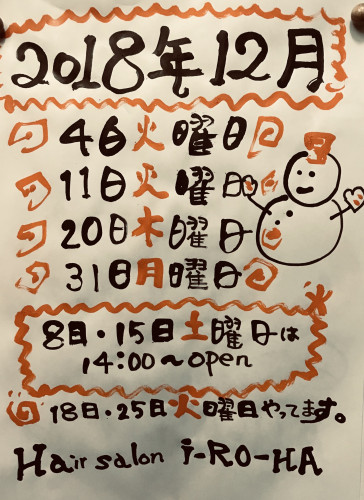 2018年12月
4日火曜日
11日火曜日
20日木曜日
31日月曜日
8日・15日土曜日は
14:00〜open
18日・25日火曜日やってます。
Hair salon i-RO-HA